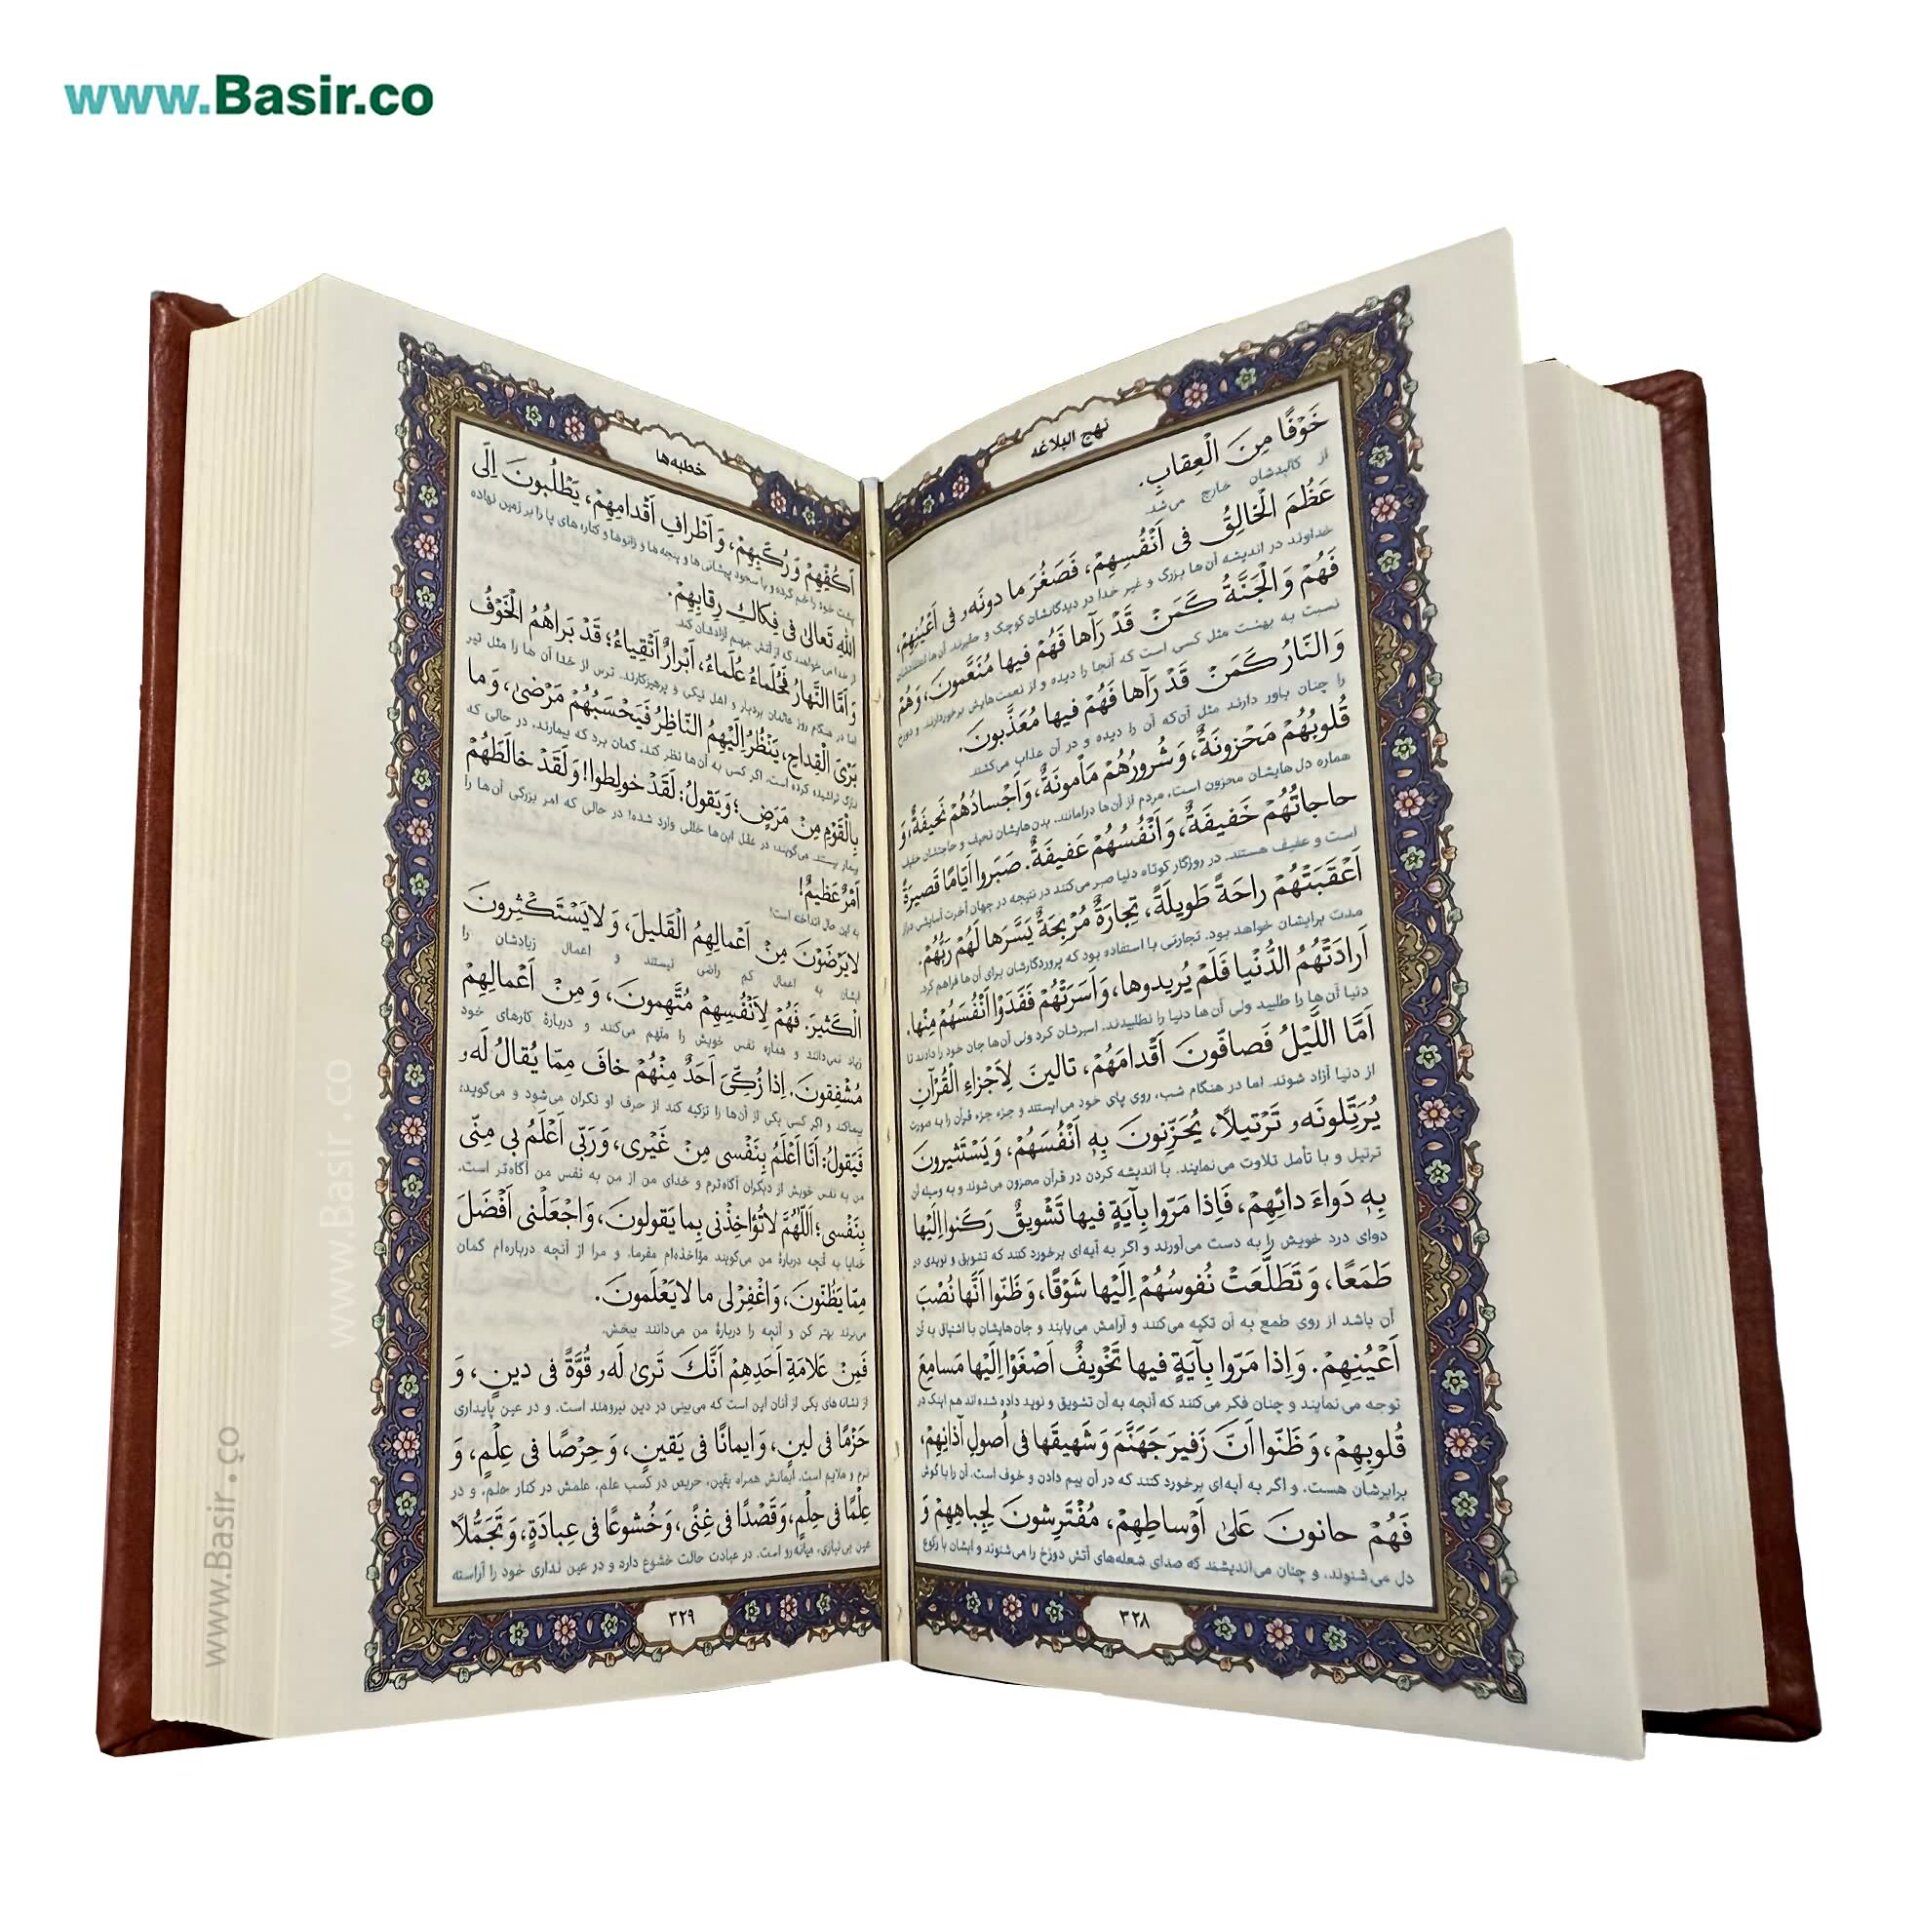 www.Basir.co
نهج البلاغه
خَوْفًا مِنَ الْعِقابِ.
از کالبدشان خارج می‌شد.
عَظُمَ الْخالِقُ فی اَنْفُسِهِمْ، فَصَغُرَ ما دونَه فی اَعْیُنِهِمْ،
خداوند در اندیشه آن‌ها بزرگ و غیر خدا در دیدگانشان کوچک و حقیرند. آن‌ها اعتقادشان
فَهُمْ وَ الْجَنَّةُ کَمَنْ قَدْ رَآها فَهُمْ فیها مُنَعَّمونَ، وَ هُمْ
نسبت به بهشت مثل کسی است که آنجا را دیده و از نعمت‌هایش برخوردارند. و دوزخ
وَ النّارُ کَمَنْ قَدْ رَآها فَهُمْ فیها مُعَذَّبونَ.
را چنان باور دارند مثل آن‌که آن را دیده و در آن عذاب می‌کشند.
قُلوبُهُمْ مَحْزونَةٌ، وَ شُرورُهُمْ مَأْمونَةٌ، وَ اَجْسادُهُمْ نَحیفَةٌ، وَ
همواره دل‌هایشان محزون است، مردم از آن‌ها درامانند. بدن‌هایشان نحیف و حاجتشان خفیف
حاجاتُهُمْ خَفیفَةٌ، وَ اَنْفُسُهُمْ عَفیفَةٌ. صَبَروا اَیّامًا قَصیرَةً
است و عفیف هستند. در روزگار کوتاه دنیا صبر می‌کنند در نتیجه در جهان آخرت آسایشی دراز
اَعْقَبَتْهُمْ راحَةً طَویلَةً، تِجارَةٌ مُرْبِحَةٌ یَسَّرَها لَهُمْ رَبُّهُمْ.
مدت برایشان خواهد بود. تجارتی با استفاده بود که پروردگارشان برای آن‌ها فراهم کرد.
اَرادَتْهُمُ الدُّنْیا فَلَمْ یُریدوها، وَ اَسَرَتْهُمْ فَفَدَوْا اَنْفُسَهُمْ مِنْها.
دنیا آن‌ها را طلبید ولی آن‌ها دنیا را نطلبیدند. اسیرشان کرد ولی آن‌ها جان خود را دادند تا
اَمَّا اللَّیْلُ فَصافّونَ اَقْدامَهُمْ، تالینَ لِاَجْزاءِ الْقُرْآنِ
از دنیا آزاد شوند. اما در هنگام شب، روی پای خود می‌ایستند و جزء جزء قرآن را به صورت
یُرَتِّلونَه تَرْتیلًا، یُحَزِّنونَ بِهِ اَنْفُسَهُمْ، وَ یَسْتَثیرونَ
ترتیل و با تأمل تلاوت می‌نمایند. با اندیشه کردن در قرآن محزون می‌شوند و به وسیله آن
بِهِ دَواءَ دائِهِمْ، فَاِذا مَرّوا بِآیَةٍ فیها تَشْویقٌ رَکَنوا اِلَیْها
دوای درد خویش را به دست می‌آورند و اگر به آیه‌ای برخورد کنند که تشویق و نویدی در
طَمَعًا، وَ تَطَلَّعَتْ نُفوسُهُمْ اِلَیْها شَوْقًا، وَ ظَنّوا اَنَّها نُصْبَ
آن باشد از روی طمع به آن تکیه می‌کنند و آرامش می‌یابند و جان‌هایشان با اشتیاق به آن
اَعْیُنِهِمْ. وَ اِذا مَرّوا بِآیَةٍ فیها تَخْویفٌ اَصْغَوْا اِلَیْها مَسامِعَ
توجه می‌نمایند و چنان فکر می‌کنند که آنچه به آن تشویق و نوید داده شده‌اند هم اینک در
قُلوبِهِمْ، وَ ظَنّوا اَنَّ زَفیرَ جَهَنَّمَ وَ شَهیقَها فی اُصولِ آذانِهِمْ،
برابرشان هست. و اگر به آیه‌ای برخورد کنند که در آن بیم دادن و خوف است، آن را با گوش
فَهُمْ حانونَ عَلیٰ اَوْساطِهِمْ، مُفْتَرِشونَ لِجِباهِهِمْ وَ
دل می‌شنوند. و چنان می‌اندیشند که صدای شعله‌های آتش دوزخ را می‌شنوند و ایشان با رکوع
۳۲۸
خطبه‌ها
اَکُفِّهِمْ وَ رُکَبِهِمْ، وَ اَطْرافِ اَقْدامِهِمْ، یَطْلُبونَ اِلَی
پشت خود را خم کرده و با سجود پیشانی‌ها و پنجه‌ها و زانوها و کناره‌های پا را بر زمین نهاده
اللّٰهِ تَعالیٰ فی فِکاكِ رِقابِهِمْ.
از خدا می‌خواهند که از آتش جهنم آزادشان کند.
وَ اَمَّا النَّهارُ فَحُلَماءُ عُلَماءُ، اَبْرارٌ اَتْقِیاءُ؛ قَدْ بَراهُمُ الْخَوْفُ
اما در هنگام روز عالمان بردبار و اهل نیکی و پرهیزکارند. ترس از خدا آن ها را مثل تیر
بَرْیَ الْقِداحِ، یَنْظُرُ اِلَیْهِمُ النّاظِرُ فَیَحْسَبُهُمْ مَرْضیٰ، وَ ما
نازک تراشیده کرده است. اگر کسی به آن‌ها نظر کند، گمان برد که بیمارند، در حالی که
بِالْقَوْمِ مِنْ مَرَضٍ؛ وَ یَقولُ: لَقَدْ خولِطوا! وَ لَقَدْ خالَطَهُمْ
بیمار نیستند. می‌گویند: در عقل این‌ها خللی وارد شده! در حالی که امر بزرگی آن‌ها را
اَمْرٌ عَظیمٌ!
به این حال انداخته است!
لایَرْضَوْنَ مِنْ اَعْمالِهِمُ الْقَلیلَ، وَ لایَسْتَکْثِرونَ
ایشان به اعمال کم راضی نیستند و اعمال زیادشان را
الْکَثیرَ. فَهُمْ لِاَنْفُسِهِمْ مُتَّهِمونَ، وَ مِنْ اَعْمالِهِمْ
زیاد نمی‌دانند و همواره نفس خویش را متهم می‌کنند و دربارهٔ کارهای خود
مُشْفِقونَ. اِذا زُکِّیَ اَحَدٌ مِنْهُمْ خافَ مِمّا یُقالُ لَه
بیمناکند و اگر کسی یکی از آن‌ها را تزکیه کند از حرف او نگران می‌شود و می‌گوید:
فَیَقولُ: اَنَا اَعْلَمُ بِنَفْسی مِنْ غَیْری، وَ رَبّی اَعْلَمُ بی مِنّی
من به نفس خویش از دیگران آگاه‌ترم و خدای من از من به نفس من آگاه‌تر است.
بِنَفْسی؛ اَللّٰهُمَّ لاتُؤاخِذْنی بِما یَقولونَ، وَ اجْعَلْنی اَفْضَلَ
خدایا به آنچه دربارهٔ من می‌گویند مؤاخذه‌ام مفرما. و مرا از آنچه درباره‌ام گمان
مِمّا یَظُنّونَ، وَ اغْفِرْ لی ما لایَعْلَمونَ.
می‌برند بهتر کن و آنچه را دربارهٔ من می‌دانند ببخش.
فَمِنْ عَلامَةِ اَحَدِهِمْ اَنَّكَ تَریٰ لَه قُوَّةً فی دینٍ، وَ
از نشانه های یکی از آنان این است که می‌بینی در دین نیرومند است. و در عین پایداری
حَزْمًا فی لینٍ، وَ ایمانًا فی یَقینٍ، وَ حِرْصًا فی عِلْمٍ، وَ
نرم و ملایم است. ایمانش همراه یقین، حریص در کسب علم، علمش در کنار حلم، و در
عِلْمًا فی حِلْمٍ، وَ قَصْدًا فی غِنًی، وَ خُشوعًا فی عِبادَةٍ، وَ تَجَمُّلًا
عین بی‌نیازی، میانه‌رو است. در عبادت حالت خشوع دارد و در عین نداری خود را آراسته
۳۲۹
www.Basir.co
www.Basir.co